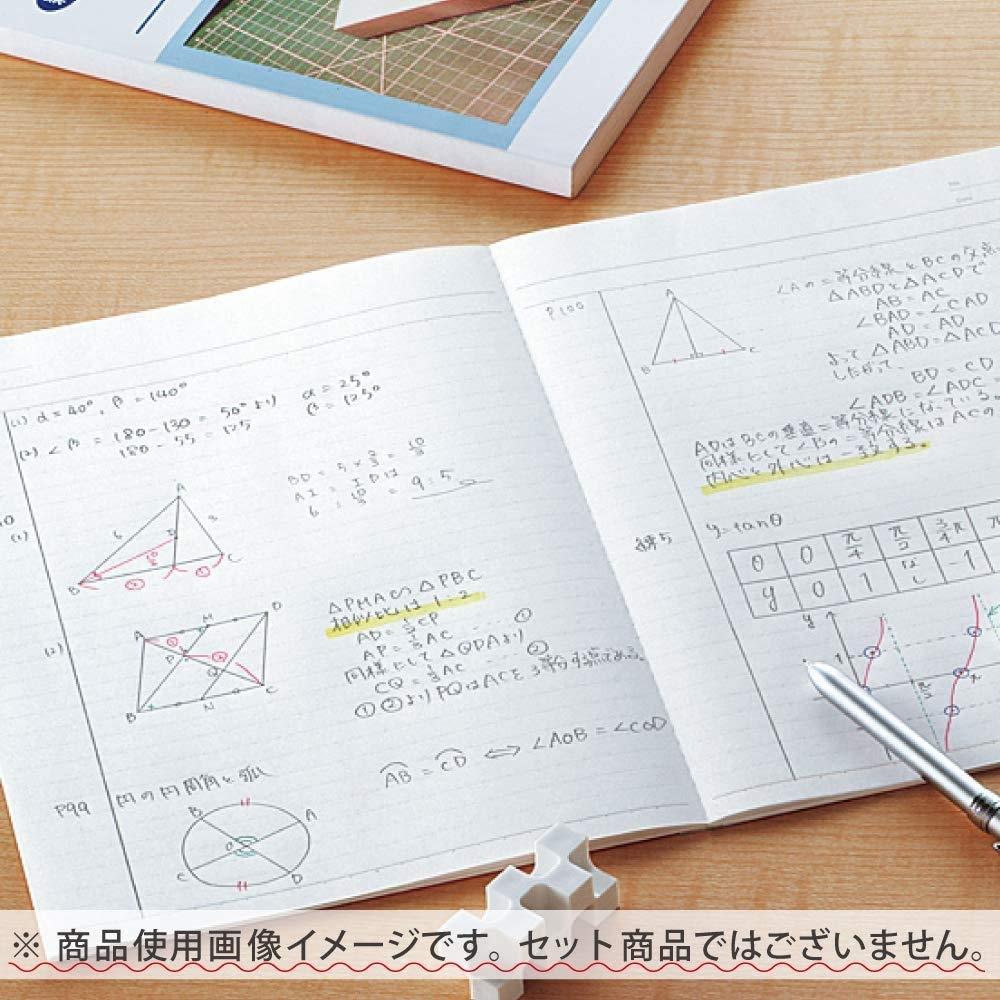 (1) α=40°, β=140°
α=25°
β=125°
(2) ∠β = 180-130 = 50°より
180-55=125
(1)
A
6
3
B
C
BD = 5×2/3 = 10/3
AI : IDは
6 : 10/3 = 9:5
(2)
A
M
D
P
Q
B
N
C
△PMA∽△PBC
相似比は1:2
AP=1/3AC …①
同様にして△QDAより
CQ=1/3AC …②
①②よりPQはACを3等分する点である。
P99
円の円周角と弧
B
A
O
C
D
AB = CD ⇔ ∠AOB = ∠COD
P100
A
B
C
∠Aの二等分線とBCの交点
△ABDと△ACDで
AB=AC
∠BAD=∠CAD
AD=AD
よって△ABD=△ACD
したがって、
BD=CD
∠ADB=∠ADC=
ADはBCの垂直二等分線になっている。
同様にして∠Bの二等分線はACの
内心と外心は一致する。
練5
y=tanθ
θ 0 π/4 π/2 3/4π π
y 0 1 なし -1
y
1
π/2
π
※ 商品使用画像イメージです。セット商品ではございません。